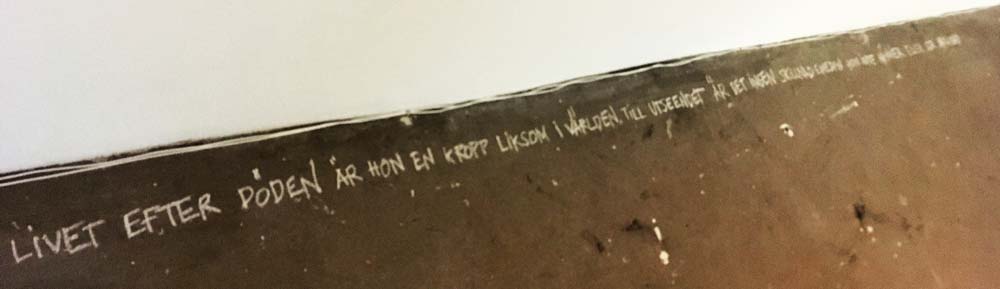 LIVET EFTER DÖDEN ÄR HON EN KROPP LIKSOM I VÄRLDEN. TILL UTSEENDET ÄR DET INGEN SKILLNAD